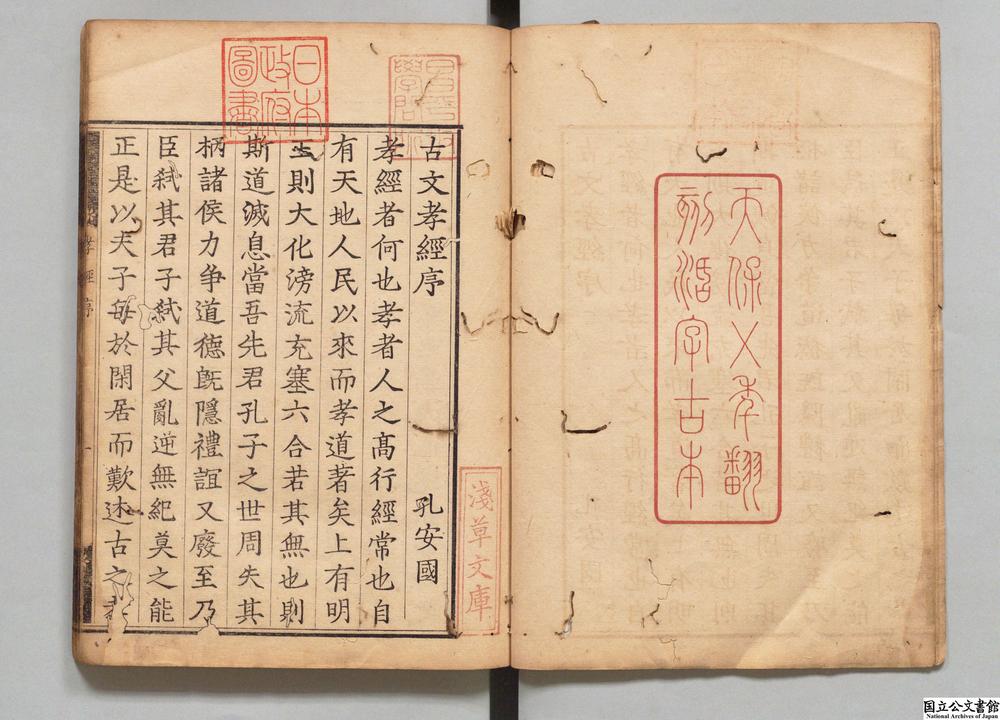 天保㐅年翻
刻活字古本
日本
政府
圖書
昌平坂
學問所
淺草文庫
古文孝經序 孔安國
孝經者何也孝者人之髙行經常也自
有天地人民以來而孝道著矣上有明
王則大化滂流充塞六合若其無也則
斯道滅息當吾先君孔子之世周失其
柄諸侯力争道德既隱禮誼又廢至乃
臣弑其君子弑其父亂逆無紀莫之能
正是以夫子每於閑居而歎述古之孝
孝經序
一
国立公文書館
National Archives of Japan